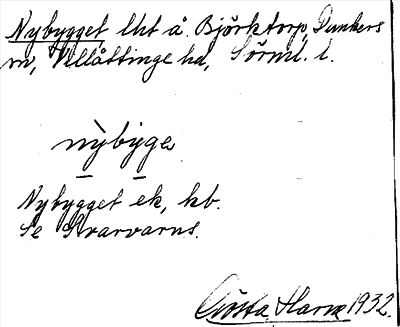 Nybygget lht å Björktorp, Dunkers
sn, Villåttinge hd, Sörml. l.
nỳbyge
Nybygget ek, kb.
Se Kvarvarns.
Gösta Harve 1932.